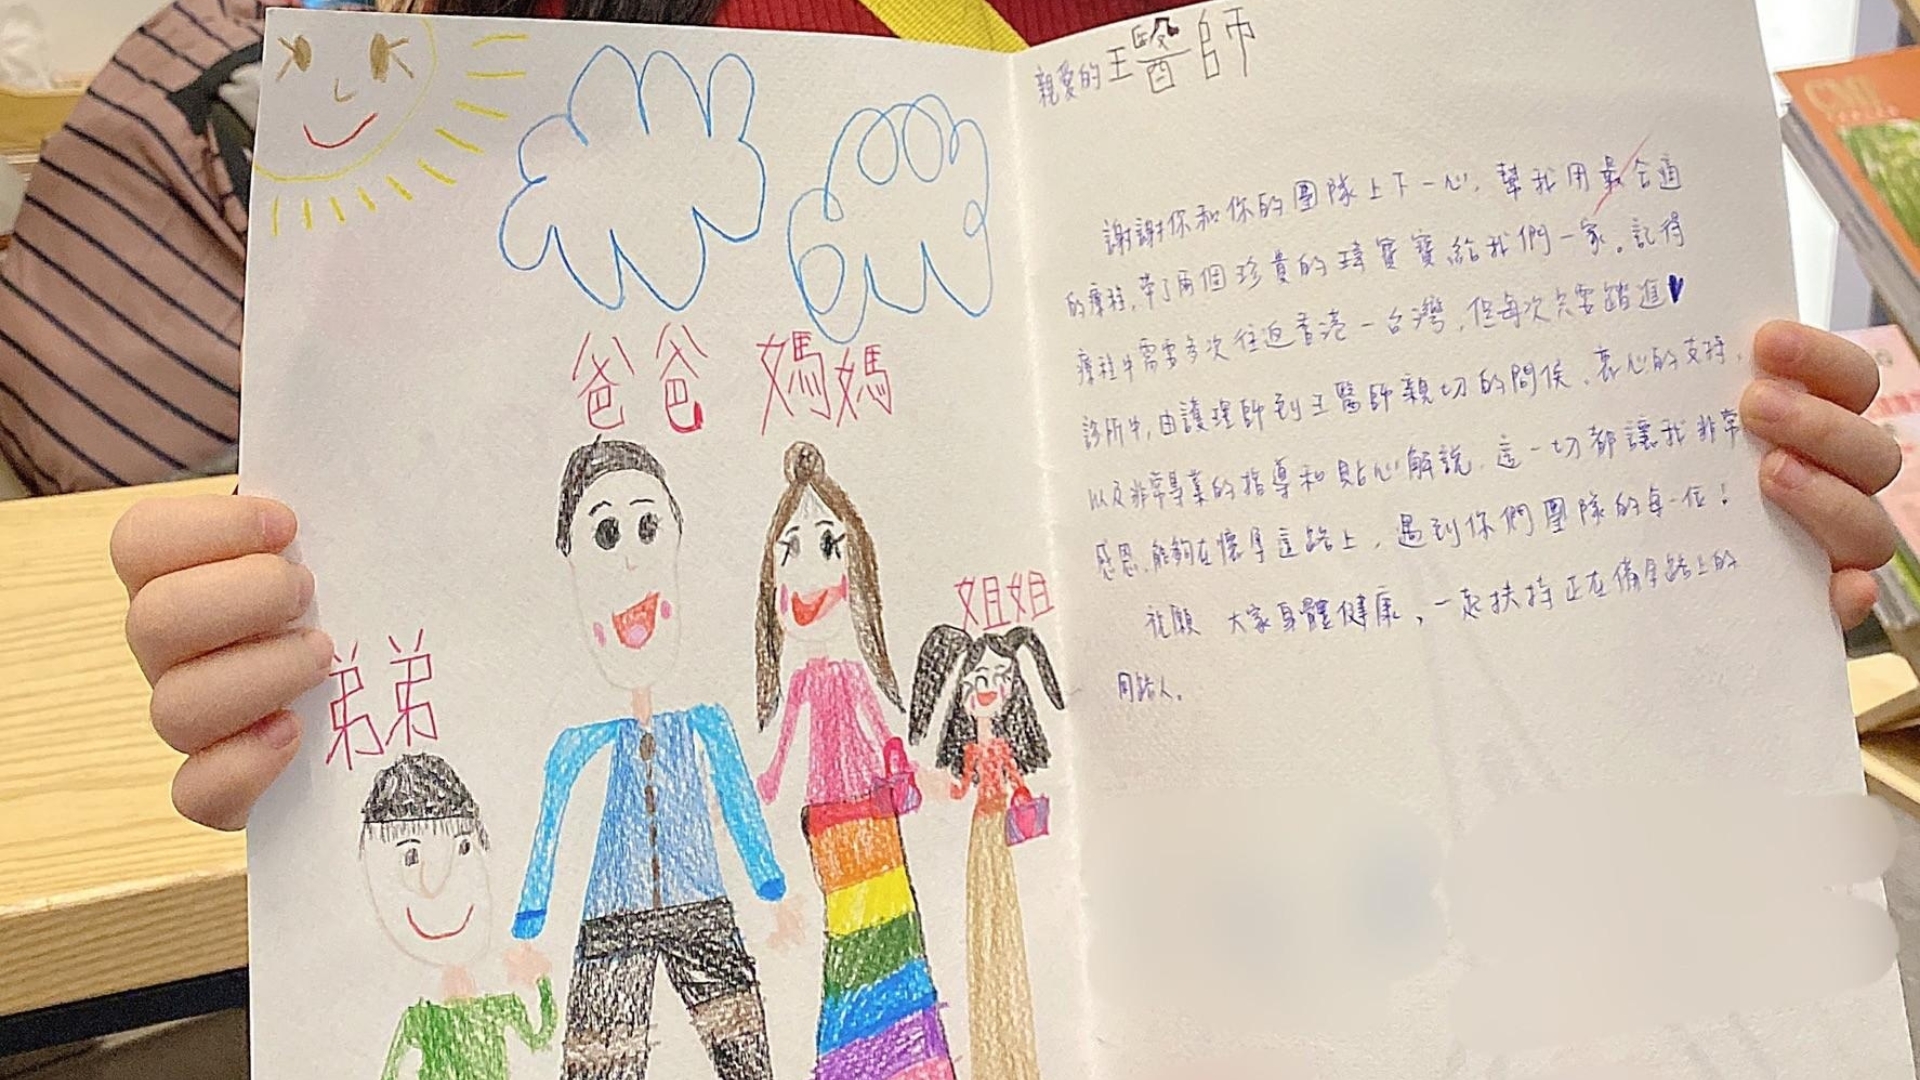 親愛的王醫師
謝謝你和你的團隊上下一心，幫我用最合適
的療程，帶了兩個珍貴的瑋寶寶給我們一家。記得
療程中需要多次往返香港－台灣，但每次只要踏進♥
診所中，由護理師到王醫師親切的問侯、衷心的支持，
以及非常專業的指導和貼心解說，這一切都讓我非常
感恩，能夠在懷孕這路上，遇到你們團隊的每一位！
祝願 大家身體健康，一起扶持正在備孕路上的
同路人。
爸爸 媽媽
姐姐
弟弟